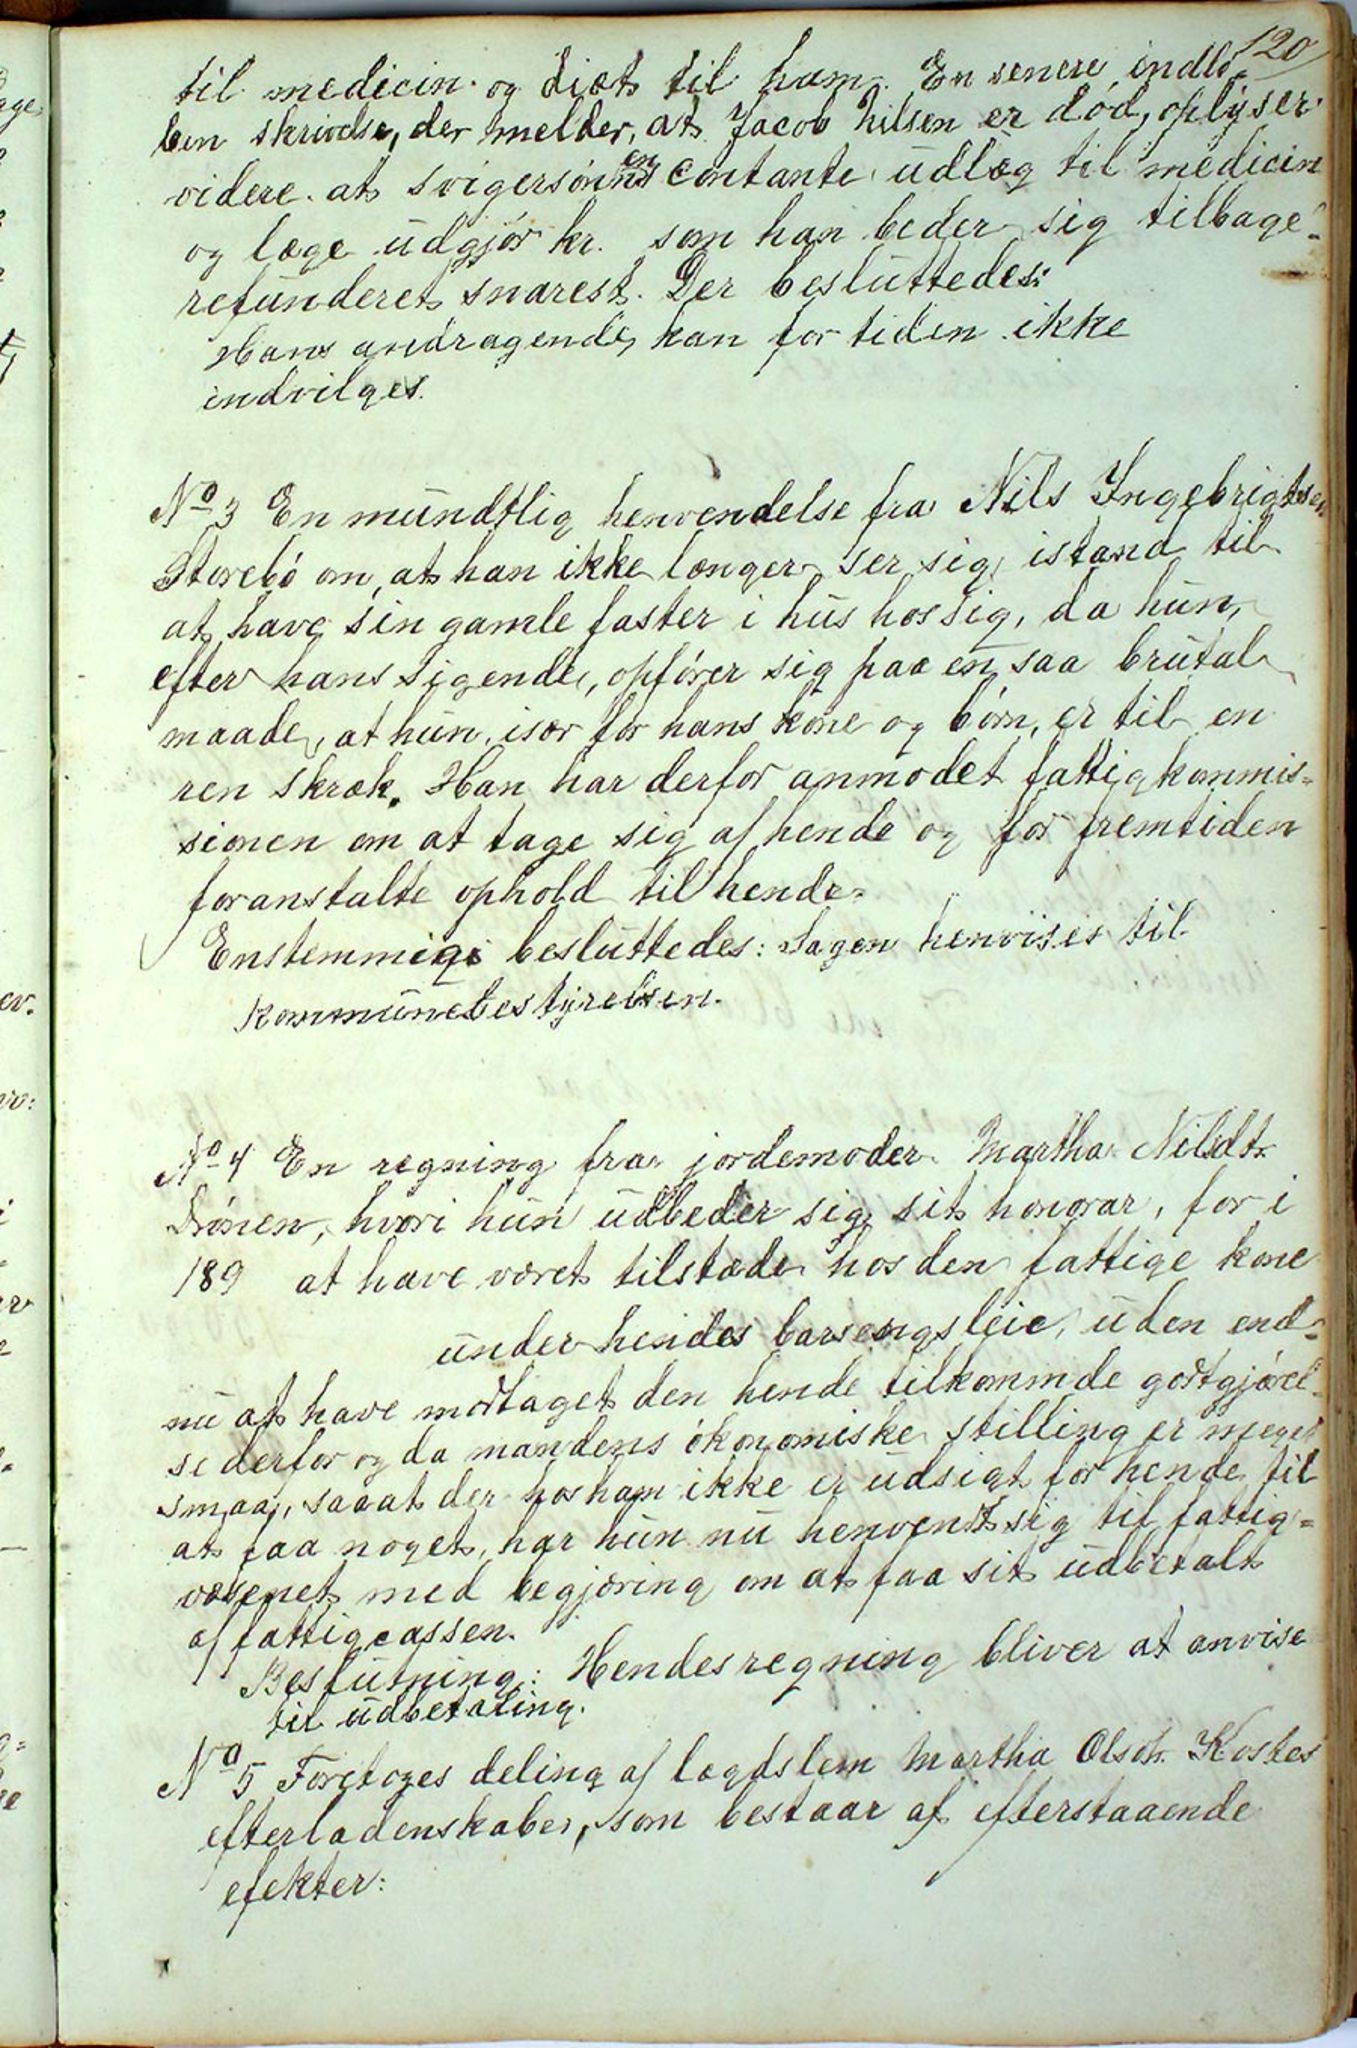 120
til medicin og diæt til ham. En senere indlø-
ben skrivelse, der melder, at Jacob Nilsen er død, oplyser
videre at svigersønnens contante udlæg til medicin
og læge udgjør kr. som han beder sig tilbage-
refunderet snarest. Der besluttedes:
Hans andragende kan for tiden ikke
indvilges.
No 3 En mundtlig henvendelse fra Nils Ingebrigtsen
Storebø om, at han ikke længer ser sig istand til
at have sin gamle faster i hus hos sig, da hun,
efter hans sigende, opfører sig paa en saa brutal
maade, at hun, især for hans kone og børn, er til en
ren skræk. Han har derfor anmodet fattigkommis-
sionen om at tage sig af hende og for fremtiden
foranstalte ophold til hende.
Enstemmigs besluttedes: Sagen henvises til
kommunebestyrelsen.
No 4 En regning fra jordemoder Martha Nilsdt.
Drönen, hvori hun udbeder sig sit honorar, for i
189 at have været tilstæde hos den fattige kone
under hendes barsengsleie, uden end-
nu at have modtaget den hende tilkommde godtgjørel-
se derfor og da mandens økonomiske stilling er meget
smaa, saaat der hos ham ikke er udsigt for hende til
at faa noget, har hun nu henvendt sig til fattig-
væsenet med begjæring om at faa sit udbetalt
af fattigcassen.
Beslutning: Hendes regning bliver at anvise
til udbetaling.
No 5 Foretoges deling af lægdslem Martha Olsdt. Kostes
efterladenskaber, som bestaar af efterstaaende
efekter: